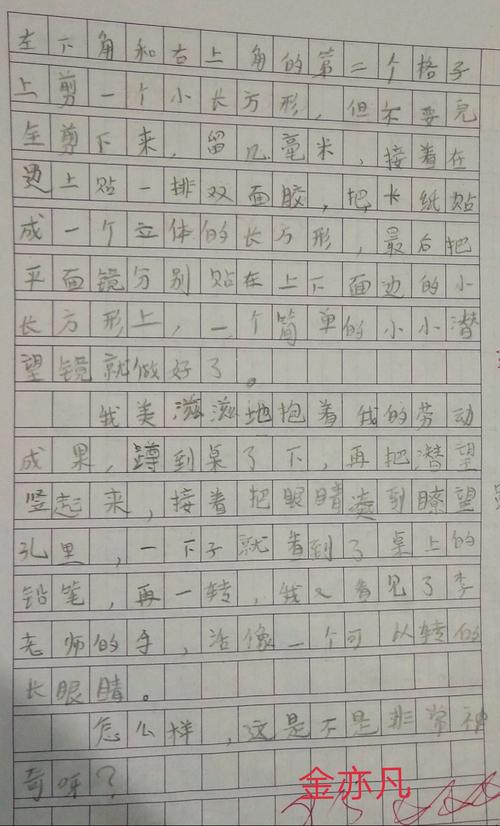 左下角和右上角的第二个格子
上剪一个小长方形，但不要完
全剪下来，留几毫米，接着在
边上贴一排双面胶，把卡纸贴
成一个立体的长方形，最后把
平面镜分别贴在上下面边的小
长方形上，一个简单的小小潜
望镜就做好了。
我美滋滋地抱着我的劳动
成果，蹲到桌了下，再把潜望
竖起来，接着把眼睛凑到瞭望
孔里，一下子就看到了桌上的
铅笔，再一转，我又看见了李
老师的手，活像一个可以转的
长眼睛。
怎么样，这是不是非常神
奇呀？
金亦凡